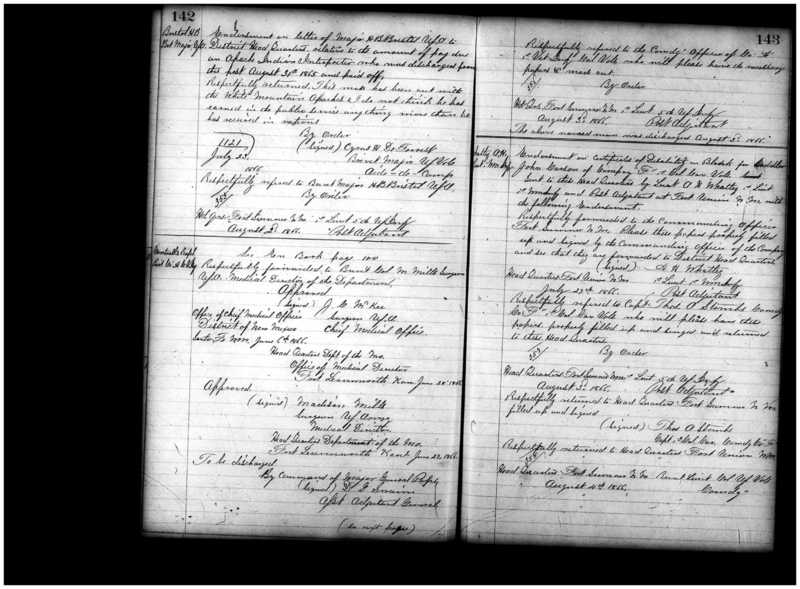 142
Bristol H.B.
Bvt Major U.S.A.
Endorsement on letter of Major H B Bristol U.S.A. to
District Head Quarters relative to the amount of pay due
an Apache Indian Interpreter who was discharged from
this post August 31st 1865 and paid off.
Respectfully returned. This man has been out with
the White Mountain Apaches & I do not think he has
earned in the public service anything more than he
has received in rations
By Order
(signed) Cyrus H. De Forrest
Brevet Major U.S. Vols
Aide-de-Camp
1121
July 23
1866.
Respectfully referred to Brevet Major H B Bristol U.S.A.
By Order
Hd Qrs Fort Sumner N.M. 1st Lieut 5th U.S. Infy
August 3rd 1866. Post Adjutant
See Book page 100
Respectfully forwarded to Brevet Col M. Mills Surgeon
U.S.A. Medical Director of the Department.
Approved
(signed) J. C. McKee
Office of Chief Medical Officer Surgeon U.S.A.
District of New Mexico Chief Medical Officer
Santa Fe N.M. June 6th 1866.
Head Quarters Dept of the Mo.
Office of Medical Director
Fort Leavenworth Kan June 20 1866
Approved
(signed) Madison Mills
Surgeon U.S. Army
Medical Director
Head Quarters Department of the Mo.
Fort Leavenworth Kan June 22 1866.
To be discharged
By Command of Major General Pope
(signed) Swaim
Asst Adjutant General
(to next page)
143
Respectfully referred to the Comdg Officer of Co.
1st Cal Infy Vols who will please have the necessary
papers made out
By Order
Hd Qrs Fort Sumner N.M. 1st Lieut 5th U.S. Infy
August 3rd 1866. Post Adjutant
The above named man was discharged August 5th 1866.
Endorsement on certificate of Disability in Blank for
John of Company "F" 1st Cal Cav Vols
sent to this Head Quarters by Lieut A H 1st Lieut
and Post Adjutant at Fort Union N.M. with
the following Endorsement
Respectfully forwarded to the Commanding Officer
Fort Sumner N.M. Please these papers properly filled
up and signed by the Commanding officer of the Company
and see that they are forwarded to District Head Quarters
(signed) A H
Head Quarters Fort Union N.M. 1st Lieut
July 27th 1866. Post Adjutant
Respectfully referred to Capt Thos A Stombs Comdg
Co F 1st Cal Cav Vols who will please have these
papers properly filled up and signed and returned
to these Head Quarters
By Order
Head Quarters Fort Sumner N.M. 1st Lieut 5th U.S. Infy
August 3rd 1866. Post Adjutant
Respectfully returned to Head Quarters Fort Sumner N.M.
filled up and signed
(signed) Thos A Stombs
Capt 1st Cal Cav, Comdg Co F
Respectfully returned to Head Quarters Fort Union N.M.
Head Quarters Fort Sumner N.M. Brevet Lieut Col U.S. Vols
August 4th 1866. Comdg